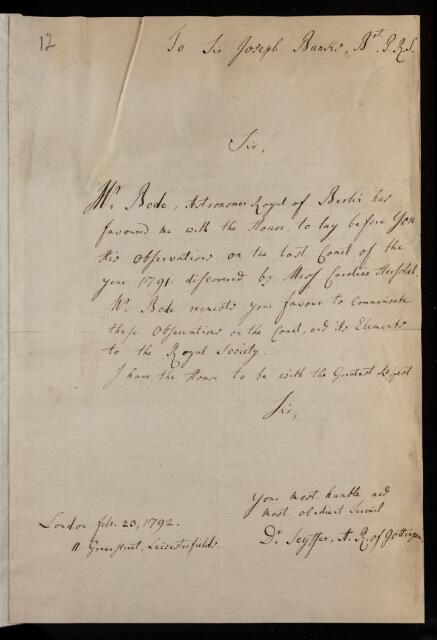 12
To Sir Joseph Banks, Bt. P.R.S.
Sir,
Mr. Bode, Astronomer Royal of Berlin has
favoured me with the Honor, to lay before You
His Observations on the last Comet of the
year 1791 discovered by Miss Caroline Herschel.
Mr. Bode requests your favour to Communicate
these Observations on the Comet, and its Elements
to the Royal Society.
I have the Honor to be with the Greatest Respect
Sir,
Your most humble and
most obedient Servant
London febr. 23, 1792.
Dr. Seyffer. A. R. of Gottingen.
11. Green Street, Leicesterfields.